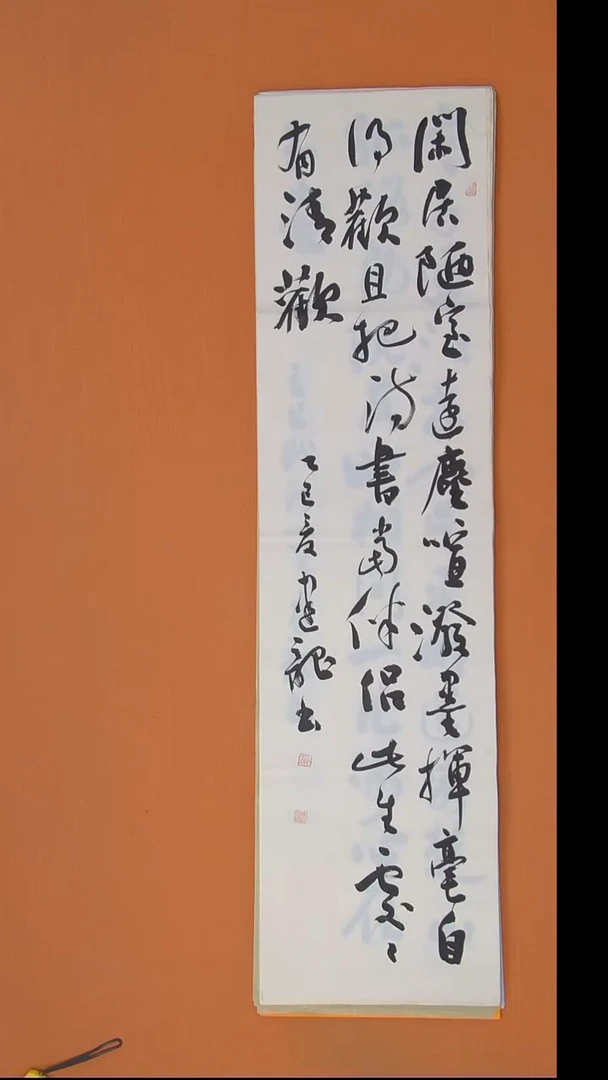 閑居陋室遠塵喧潑墨揮毫自
得歡且把詩書當伴侶此生處々
有清歡
乙巳夏建龍书